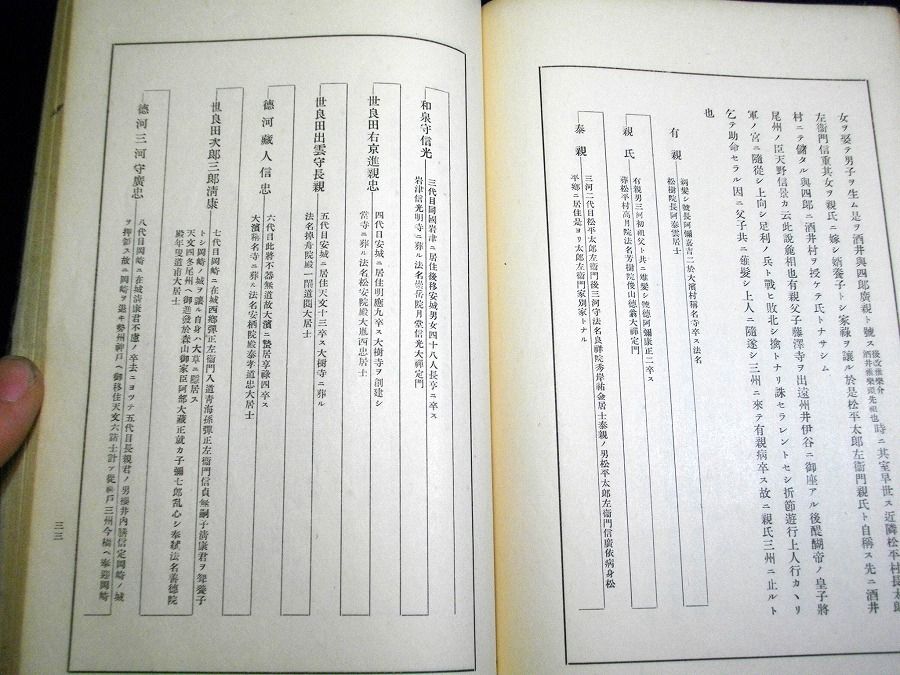 女ヲ娶テ男子ヲ生ム是ヲ酒井與四郎廣親ト號ス後改雅樂介酒井雅樂頭先祖也時ニ其室早世ス近隣松平村長太郎
左衞門信重其女ヲ親氏ニ嫁シ婿養子トシ家祿ヲ讓ル於是松平太郎左衞門親氏ト自稱ス先ニ酒井
村ニテ儲タル與四郎ニ酒井村ヲ授ケテ氏トナサシム
尾州ノ臣天野信景カ云此説麁相也有親父子藤澤寺ヲ出遠州井伊谷ニ御座アル後醍醐帝ノ皇子將
軍ノ宮ニ隨從シ上向シ足利ノ兵ト戰ヒ敗北シ擒トナリ誅セラレントセシ折節遊行上人行カヽリ
乞テ助命セラル因ニ父子共ニ薙髮シ上人ニ隨逐シ三州ニ來テ有親病卒ス故ニ親氏三州ニ止ルト
也
有親
薙髮シ號長阿彌嘉吉二於大濱村稱名寺卒ス法名
松樹院長阿泰雲居士
親氏
有親男三河初祖父ト共ニ薙髮シ號德阿彌康正二卒ス
葬松平村高月院法名芳樹院俊山德翁大禪定門
泰親
三河二代目松平太郎左衞門後三河守法名良祥院秀岸祐金居士泰親ノ男松平太郎左衞門信廣依病身松
平鄕ニ居住是ヨリ太郎左衞門家別家トナル
和泉守信光
三代目同國岩津ニ居住後移安城男女四十八人長享二卒ス
岩津信光明寺ニ葬ル法名崇岳院月堂信光大禪定門
世良田右京進親忠
四代目安城ニ居住明應九卒ス大樹寺ヲ創建シ
當寺ニ葬ル法名松安院殿大胤西忠居士
世良田出雲守長親
五代目安城ニ居住天文十三卒ス大樹寺ニ葬ル
法名掉舟院殿一閑道閱大居士
德河藏人信忠
六代目此將不器無道故大濱ニ蟄居享祿四卒ス
大濱稱名寺ニ葬ル法名安栖院殿泰孝道忠大居士
世良田次郎三郎淸康
七代目岡崎ニ在城西鄕彈正左衞門入道靑海孫彈正左衞門信貞無嗣子淸康君ヲ聟養子
トシ岡崎ノ城ヲ讓ル自身ハ大草ニ隱居ス
天文四冬尾州ヘ御進發於森山御家臣阿部大藏正就カ子彌七郎亂心シ奉弑法名善德院
殿年叟道甫大居士
德河三河守廣忠
八代目岡崎ニ在城淸康君不慮ノ卒去ニヨツテ五代目長親君ノ男櫻井内膳信定岡崎ノ城
ヲ押領ス故ニ岡崎ヲ退キ勢州神戸ヘ御移住天文六諸士計テ從神戸三州今橋ヘ奉迎岡崎
三三